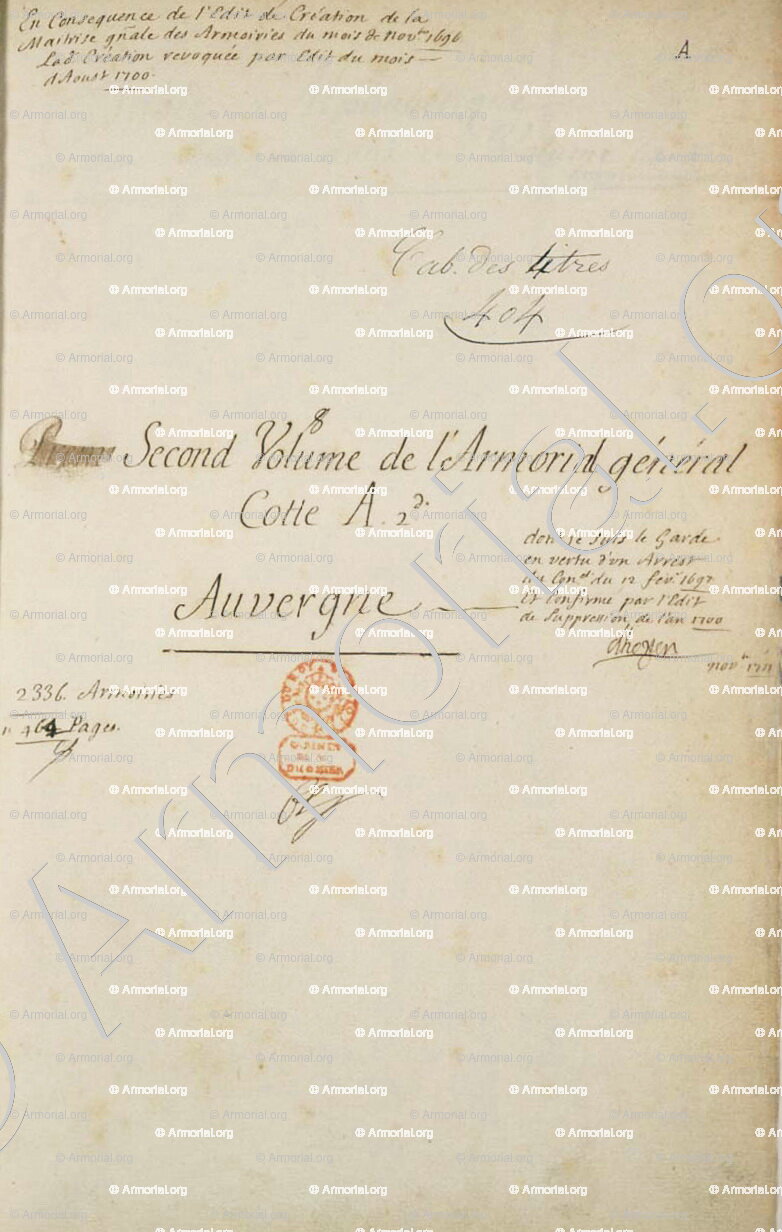 En Consequence de l'Edit de Création de la
Maitrise gñale des Armoiries du mois de nov.re 1696
Lad. Création revoquée par Edit du mois
d'Aoust 1700.
A
Cab. des titres
404
8
Second Volume de l'Armorial général
Cotte A. 2d.
dont je suis le Garde
en vertu d'un Arrest
du Con.el du 12 fevr. 1697
Et Confirmé par l'Edit
de Suppression de l'an 1700
Auvergne
dhozier
nov.re 1711
2336. Armoiries
464 Pages.
CABINET
DHOZIER
© Armorial.org
Armorial.org